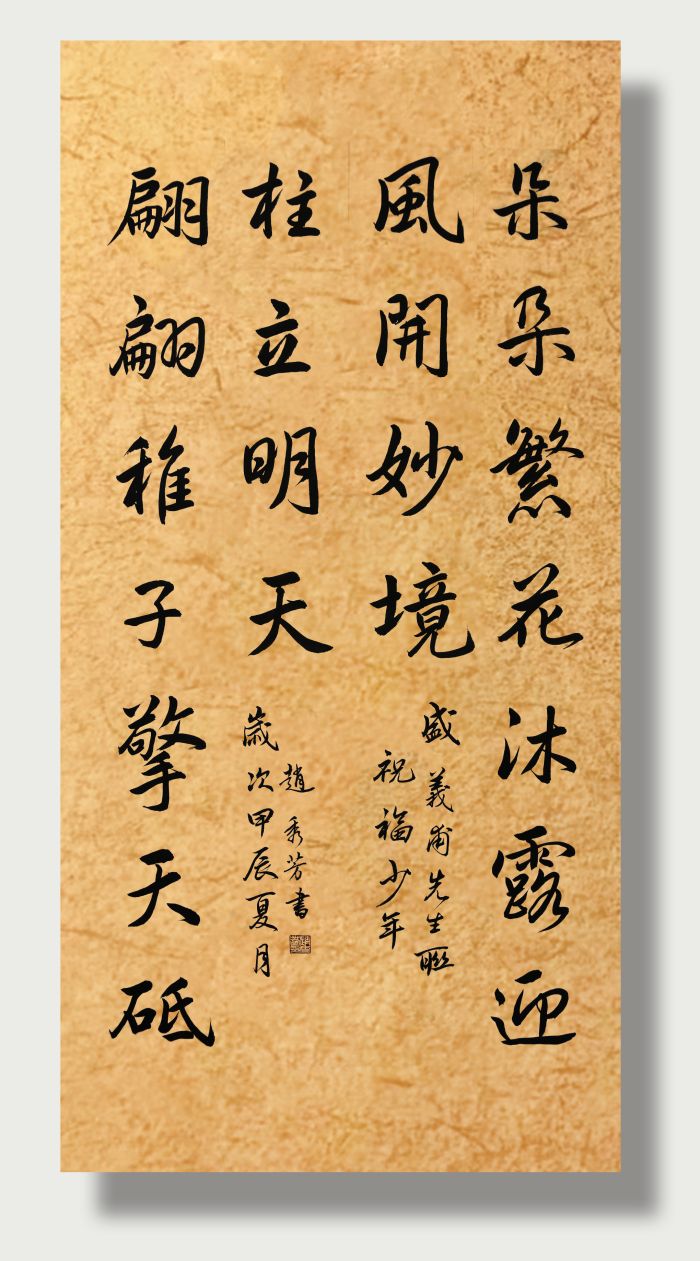 朵朵繁花沐露迎
風開妙境
盛義甫先生聯
祝福少年
翩翩稚子擎天砥
柱立明天
歲次甲辰夏月
趙秀芳書